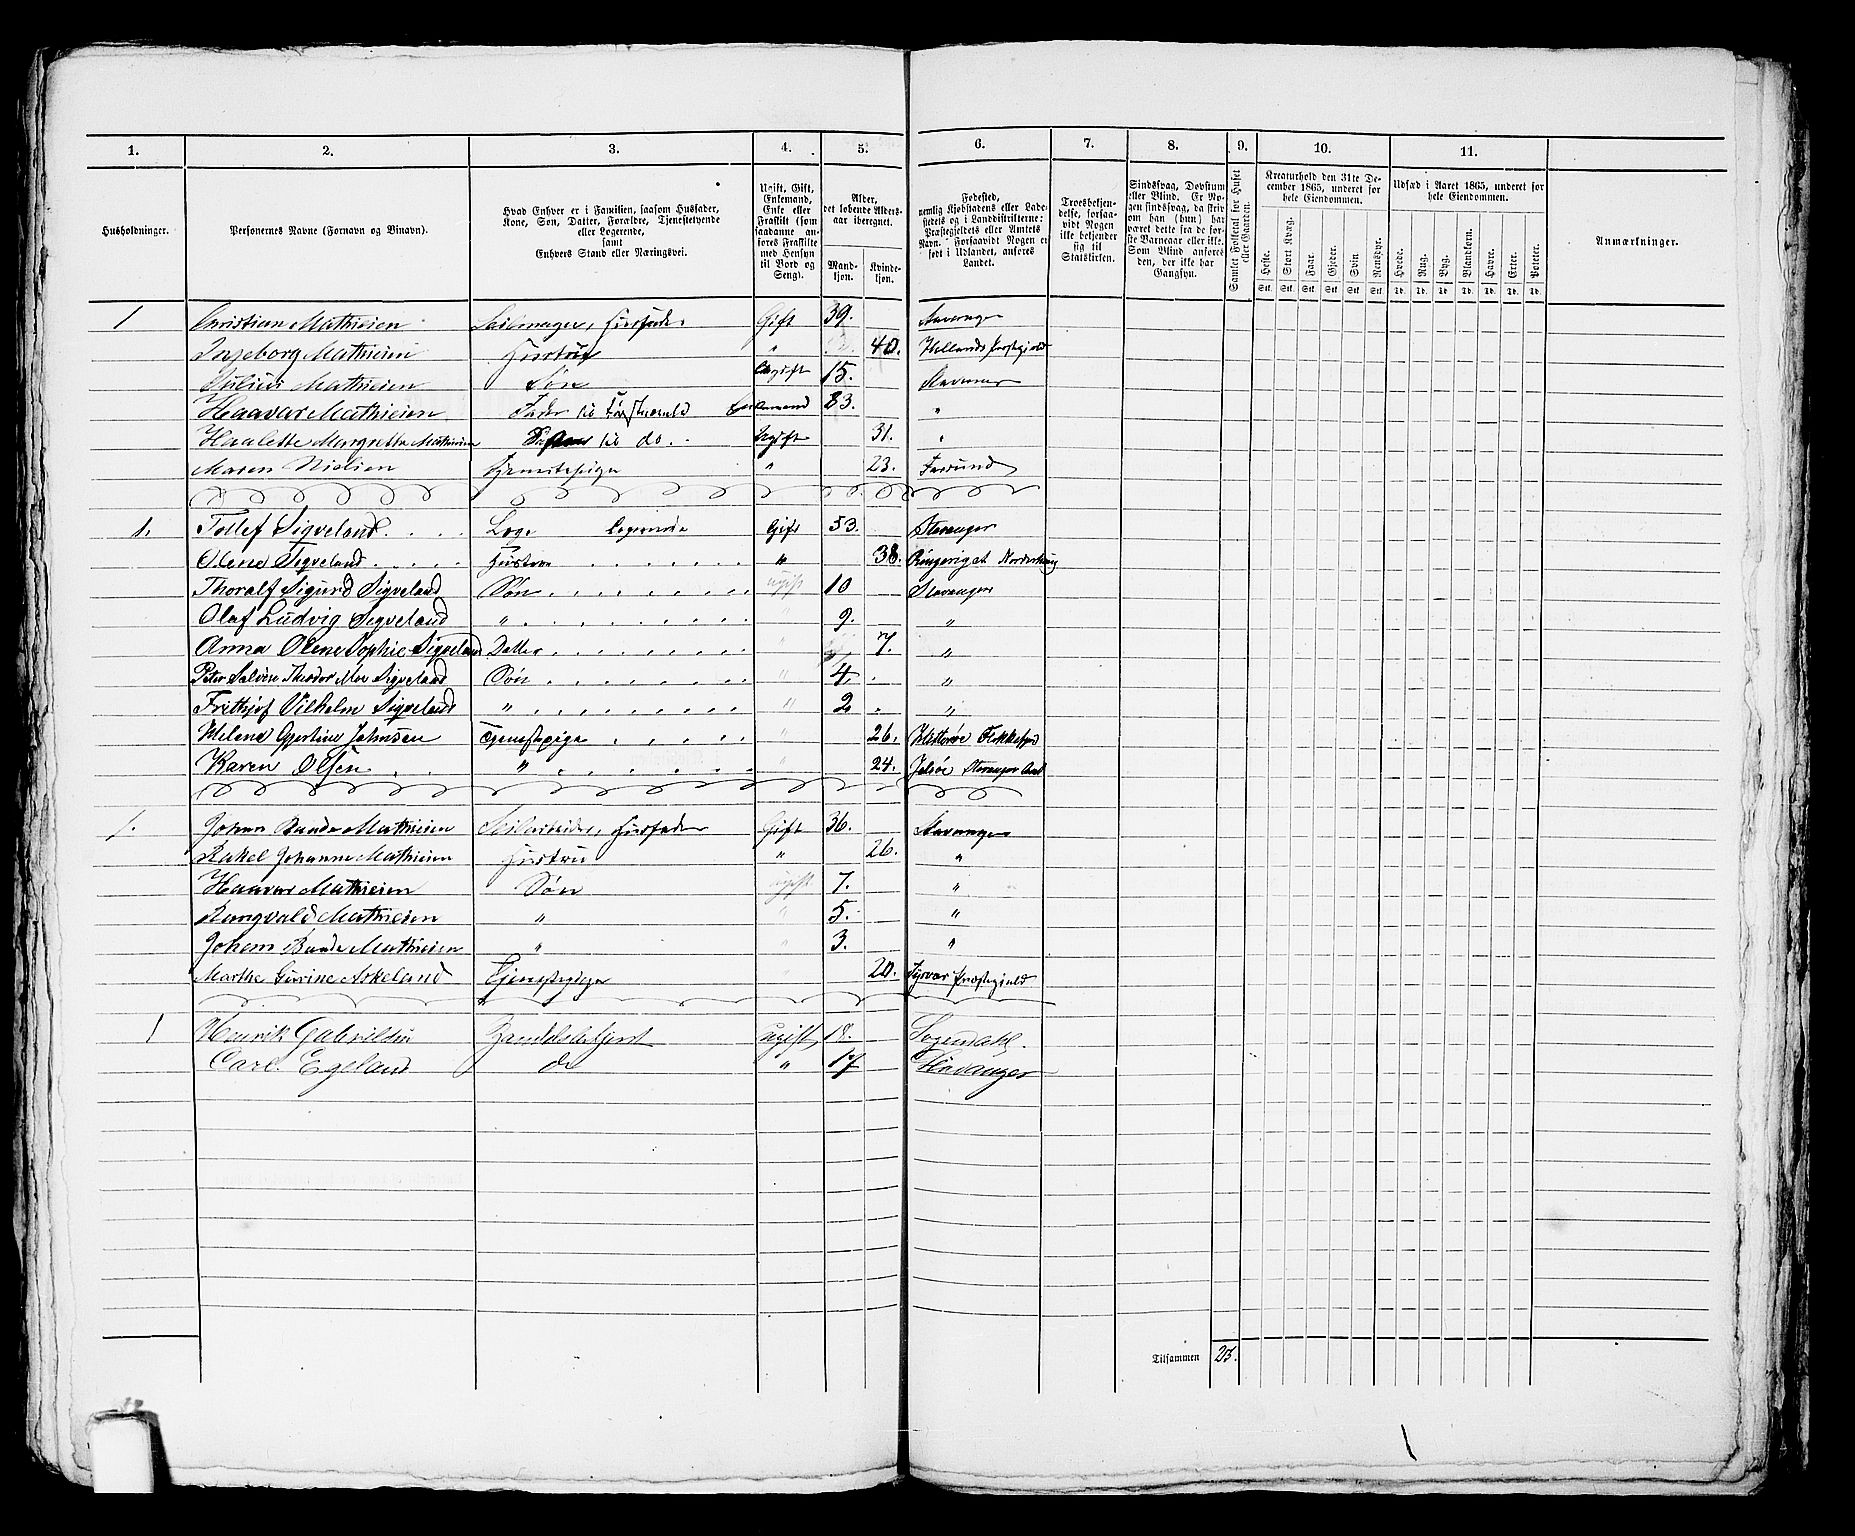 1. 2. 3. 4. 5. 6. 7. 8. 9. 10. 11.
Husholdninger.
Personernes Navne (Fornavn og Binavn).
Hvad Enhver er i Familien, saasom Husfader, Kone, Søn, Datter, Forældre, Tjenestetyende eller Logerende, samt Enhvers Stand eller Næringsvei.
Ugift, Gift, Enkemand, Enke eller Fraskilt (som saadanne anføres Fraskilte med Hensyn til Bord og Seng).
Alder, det løbende Aldersaar iberegnet.
Mandkjøn. Kvindekjøn.
Fødested, nemlig Kjøbstadens eller Ladestedets og i Landdistrikterne: Præstegjeldets eller Amtets Navn. Forsaavidt Nogen er født i Udlandet, anføres Landet.
Troesbekjendelse, forsaavidt Nogen ikke bekjender sig til Statskirken.
Sindssvag, Døvstum eller Blind. Er Nogen sindssvag, da skrives om han (hun) har været dette fra de første Barneaar eller ikke. Som Blind anføres den, der ikke har Gangsyn.
Samlet Folketal for Huset eller Gaarden.
Kreaturhold den 31te December 1865, underet for hele Eiendommen.
Heste. Stort Kvæg. Faar. Gjeder. Svin. Rensdyr.
Stk. Stk. Stk. Stk. Stk. Stk.
Udsæd i Aaret 1865, underet for hele Eiendommen.
Hvede. Rug. Byg. Blandkorn. Havre. Erter. Poteter.
Td. Td. Td. Td. Td. Td. Td.
Anmærkninger.
1 Christian Mathiesen Seilmager, Huusfader Gift 39. Stavanger
Ingeborg Mathiesen Hustru " 40. Hellands Præstegjeld
Julius Mathiesen Søn Ugift 15. Stavanger
Haavar Mathiesen Fader til Enkemand 83. "
Margrethe Mathiesen til do. Ugift 31. "
Maren Nielsen Tjenestepige " 23. Farsund
1. Tollef Sigveland Logerende Gift 53. Stavanger
Olene Sigveland Hustru " 38. Ringerige
Thoralf Sigurd Sigveland Søn ugift 10 Stavanger
Olaf Ludvig Sigveland " " 9. "
Anna Olene Sophie Sigveland Datter " 7. "
Peter Salvese Theodor Moe Sigveland Søn " 4. "
Frithjof Vilhelm Sigveland " " 2 "
Helene Gjertine Johnsen Tjenestepige " 26. Hitterøe Flekkefjord
Karen Olsen " " 24. Jelsøe Stavanger Amt
1. Johan Bunde Mathiesen Seilarbeider, Huusfader Gift 36. Stavanger
Rakel Johanne Mathiesen Hustru " 26. "
Haavar Mathiesen Søn ugift 7. "
Rangvald Mathiesen " " 5. "
Johan Bunde Mathiesen " " 3. "
Marthe Gurine Askeland Tjenestepige " 20. Tysvær Præstegjeld
1 Henrik Gabrielsen Handelsbetjent ugift 18. Sogndahl.
Carl Egeland do " 17 Stavanger
Tilsammen 23.